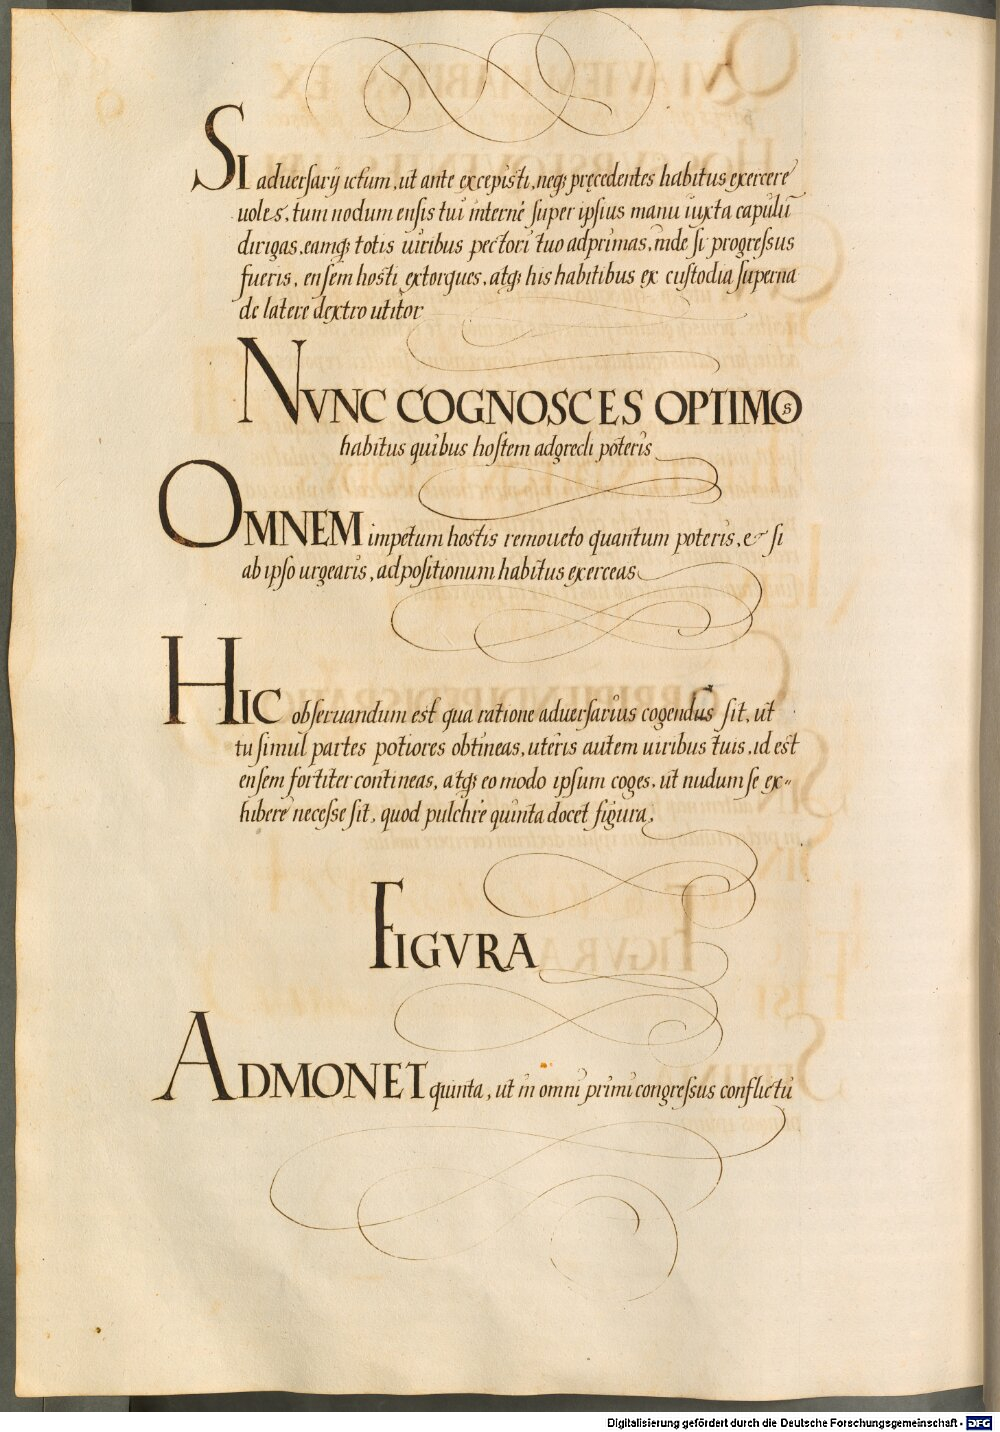 SI aduersarij ictum, ut ante excepisti, neq; pręcedentes habitus exercere
uoles, tum nodum ensis tui interne super ipsius manu iuxta capulū
dirigas, eamq; totis uiribus pectori tuo adprimas, inde si progressus
fueris, ensem hosti extorques, atq; his habitibus ex custodia superna
de latere dextro utitor
NVNC COGNOSCES OPTIMOS
habitus quibus hostem adgredi poteris
OMNEM impetum hostis remoueto quantum poteris, & si
ab ipso urgearis, ad positionum habitus exerceas
HIC obseruandum est qua ratione aduersarius cogendus sit, ut
tu simul partes potiores obtineas, uteris autem uiribus tuis, id est
ensem fortiter contineas, atq; eo modo ipsum coges, ut nudum se ex-
hibere necesse sit, quod pulchre quinta docet figura,
FIGVRA
ADMONET quinta, ut in omni primi congressus conflictu
Digitalisierung gefördert durch die Deutsche Forschungsgemeinschaft - DFG